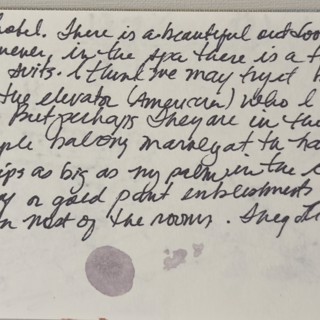 hotel. There is a beautiful outdoo
in the spa there is a
suits. I think we may try it
the elevator (American) who I
But perhaps they are in the
ple balcony
ips as big as my palm in the
or gold paint
n most of the rooms. They